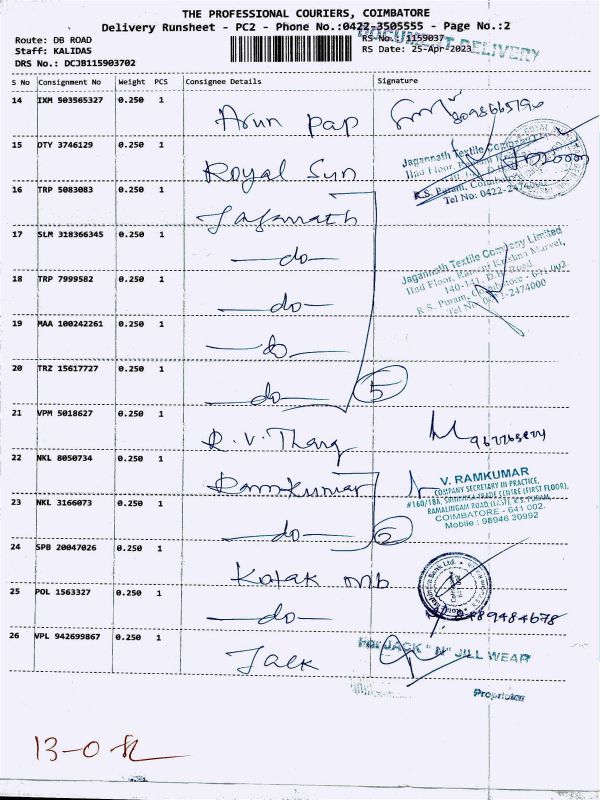 THE PROFESSIONAL COURIERS, COIMBATORE
Delivery Runsheet - PC2 - Phone No.:0422-3505555 - Page No.:2
DOCUMENT DELIVERY
Route: DB ROAD
RS No.: 1159037
Staff: KALIDAS
RS Date: 25-Apr-2023
DRS No.: DCJB115903702
S No Consignment No Weight PCS Consignee Details Signature
14 IXM 503565327 0.250 1
Arun pap
15 OTY 3746129 0.250 1
Royal Sun
Jagannath Textile Company
K.S. Puram, Coimbatore
Tel No: 0422-2474000
16 TRP 5083083 0.250 1
Jagannath
17 SLM 318366345 0.250 1
—do—
Jagannath Textile Company Limited
IInd Floor,
140-141, D.B. Road,
R.S. Puram, Coimbatore - 641 002
18 TRP 7999582 0.250 1
—do—
19 MAA 100242261 0.250 1
—do—
20 TRZ 15617727 0.250 1
—do— 5
21 VPM 5018627 0.250 1
R.V. Thang
22 NKL 8050734 0.250 1
Ramkumar
V. RAMKUMAR
COMPANY SECRETARY IN PRACTICE,
COIMBATORE - 641 002.
Mobile : 98946 30992
23 NKL 3166073 0.250 1
—do— 2
24 SPB 20047026 0.250 1
Kotak mb
25 POL 1563327 0.250 1
—do—
26 VPL 942699867 0.250 1
Jack
For JACK " N" JILL WEAR
Proprietor